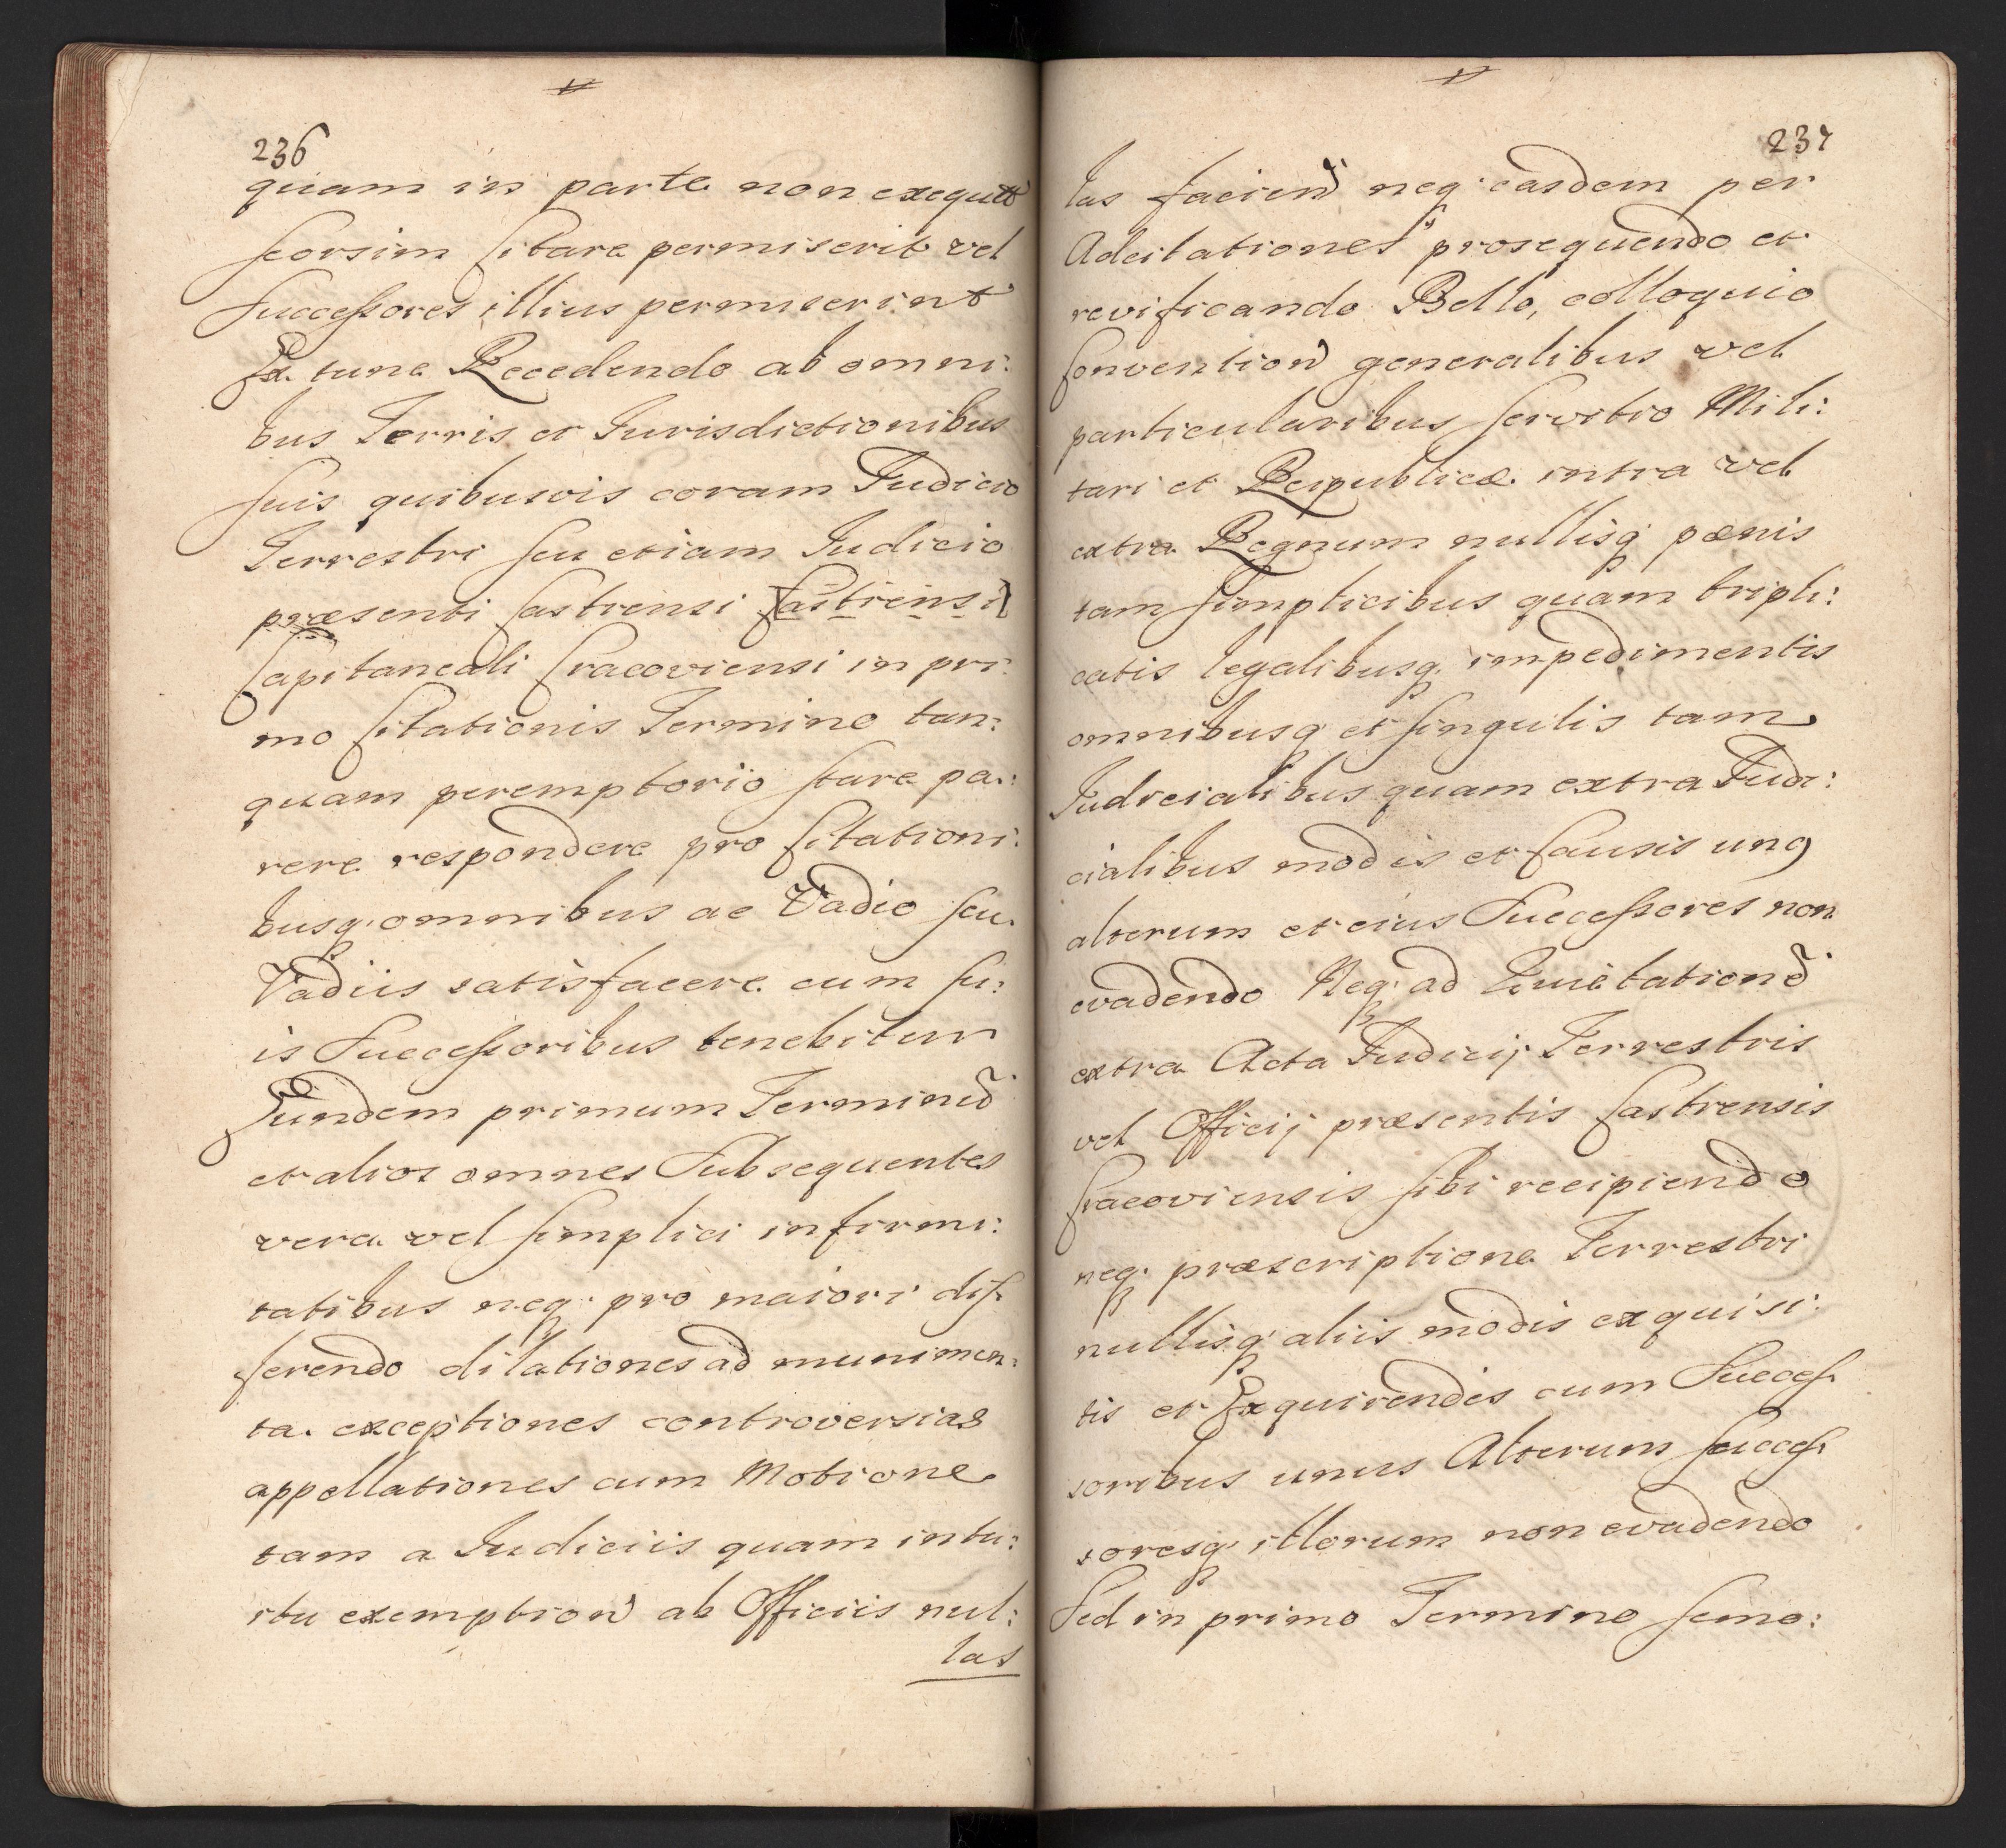 236
quam in parte non exequtt
seorsim Citare permiserit vel
Successores illius permiserint
Ex tunc Recedendo ab omni:
bus Terris et Jurisdictionibus
suis quibusvis coram Judicio
Terrestri seu etiam Judicio
præsenti Castrensi Castrensi
Capitaneali Cracoviensi in pri:
mo Citationis Termino tan:
quam peremptorio stare pa:
rere respondere pro Citationi:
busq. omnibus ac Vadio seu
Vadiis satisfacere cum su:
is Successoribus tenebitur
Eundem primum Terminū
et alios omnes Subsequentes
vera vel simplici infirmi:
tatibus neq. pro maiori dif
ferendo dilationes ad munimen:
ta exceptiones controversias
appellationes cum Motione
tam a Judiciis quam intu:
itu exemption ab Officiis nul:
las
237
las facien neq. easdem per
Adcitationes prosequendo et
revificando Bello, colloquio
Convention generalibus vel
particularibus servitio Mili:
tari et Reipublicæ intra vel
extra Regnum nullisq. pœnis
tam simplicibus quam tripli:
catis legalibusq. impedimentis
omnibusq et singulis tam
Judicialibus quam extra Judi:
cialibus modis et Causis unq
alterum et eius Successores non
evadendo Neq. ad Quietationē
extra Acta Judicij Terrestris
vel Officij præsentis Castrensis
Cracoviensis sibi recipiendo
neq. præscriptione Terrestri
nullisq. aliis modis exquisi:
tis et Exquirendis cum Succes
soribus unus Alterum succes
soresq. illorum non evadendo
Sed in primo Termino semo: